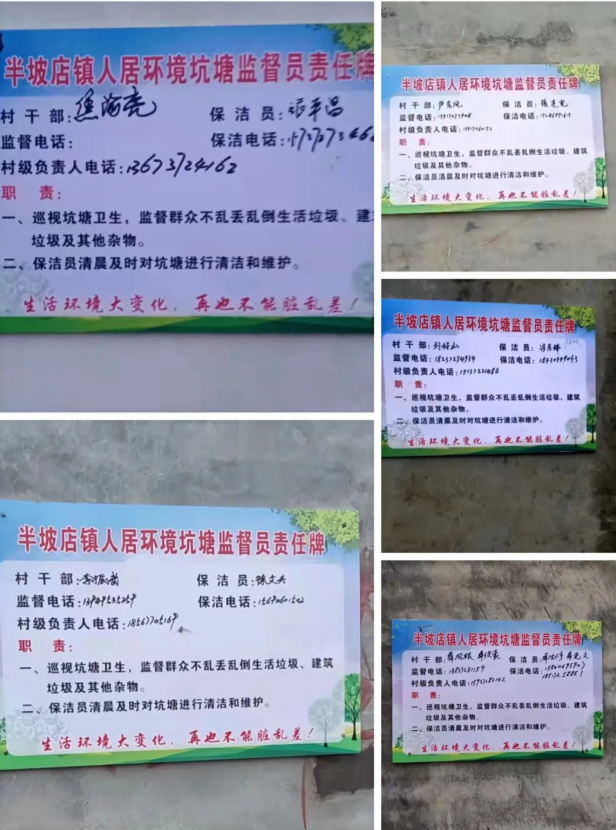 半坡店镇人居环境坑塘监督员责任牌
村干部：焦海亮 保洁员：张平昌
监督电话： 保洁电话：
村级负责人电话：13673724162
职责：
一、巡视坑塘卫生，监督群众不乱丢乱倒生活垃圾、建
垃圾及其他杂物。
二、保洁员清晨及时对坑塘进行清洁和维护。
生活环境大变化，再也不能脏乱差！
半坡店镇人居环境坑塘监督员责任牌
村干部： 保洁员：
监督电话： 保洁电话：
村级负责人电话：
职责：
一、巡视坑塘卫生，监督群众不乱丢乱倒生活垃圾、建筑
垃圾及其他杂物。
二、保洁员清晨及时对坑塘进行清洁和维护。
生活环境大变化，再也不能脏乱差！
半坡店镇人居环境坑塘监督员责任牌
村干部： 保洁员：
监督电话：18237294934 保洁电话：
村级负责人电话：
职责：
一、巡视坑塘卫生，监督群众不乱丢乱倒生活垃圾、建筑
垃圾及其他杂物。
二、保洁员清晨及时对坑塘进行清洁和维护。
生活环境大变化，再也不能脏乱差！
半坡店镇人居环境坑塘监督员责任牌
村干部： 保洁员：陈文兴
监督电话：13909535259 保洁电话：
村级负责人电话：
职责：
一、巡视坑塘卫生，监督群众不乱丢乱倒生活垃圾、建筑
垃圾及其他杂物。
二、保洁员清晨及时对坑塘进行清洁和维护。
生活环境大变化，再也不能脏乱差！
半坡店镇人居环境坑塘监督员责任牌
村干部： 保洁员：
监督电话： 保洁电话：
村级负责人电话：
职责：
一、巡视坑塘卫生，监督群众不乱丢乱倒生活垃圾、建筑
垃圾及其他杂物。
二、保洁员清晨及时对坑塘进行清洁和维护。
生活环境大变化，再也不能脏乱差！